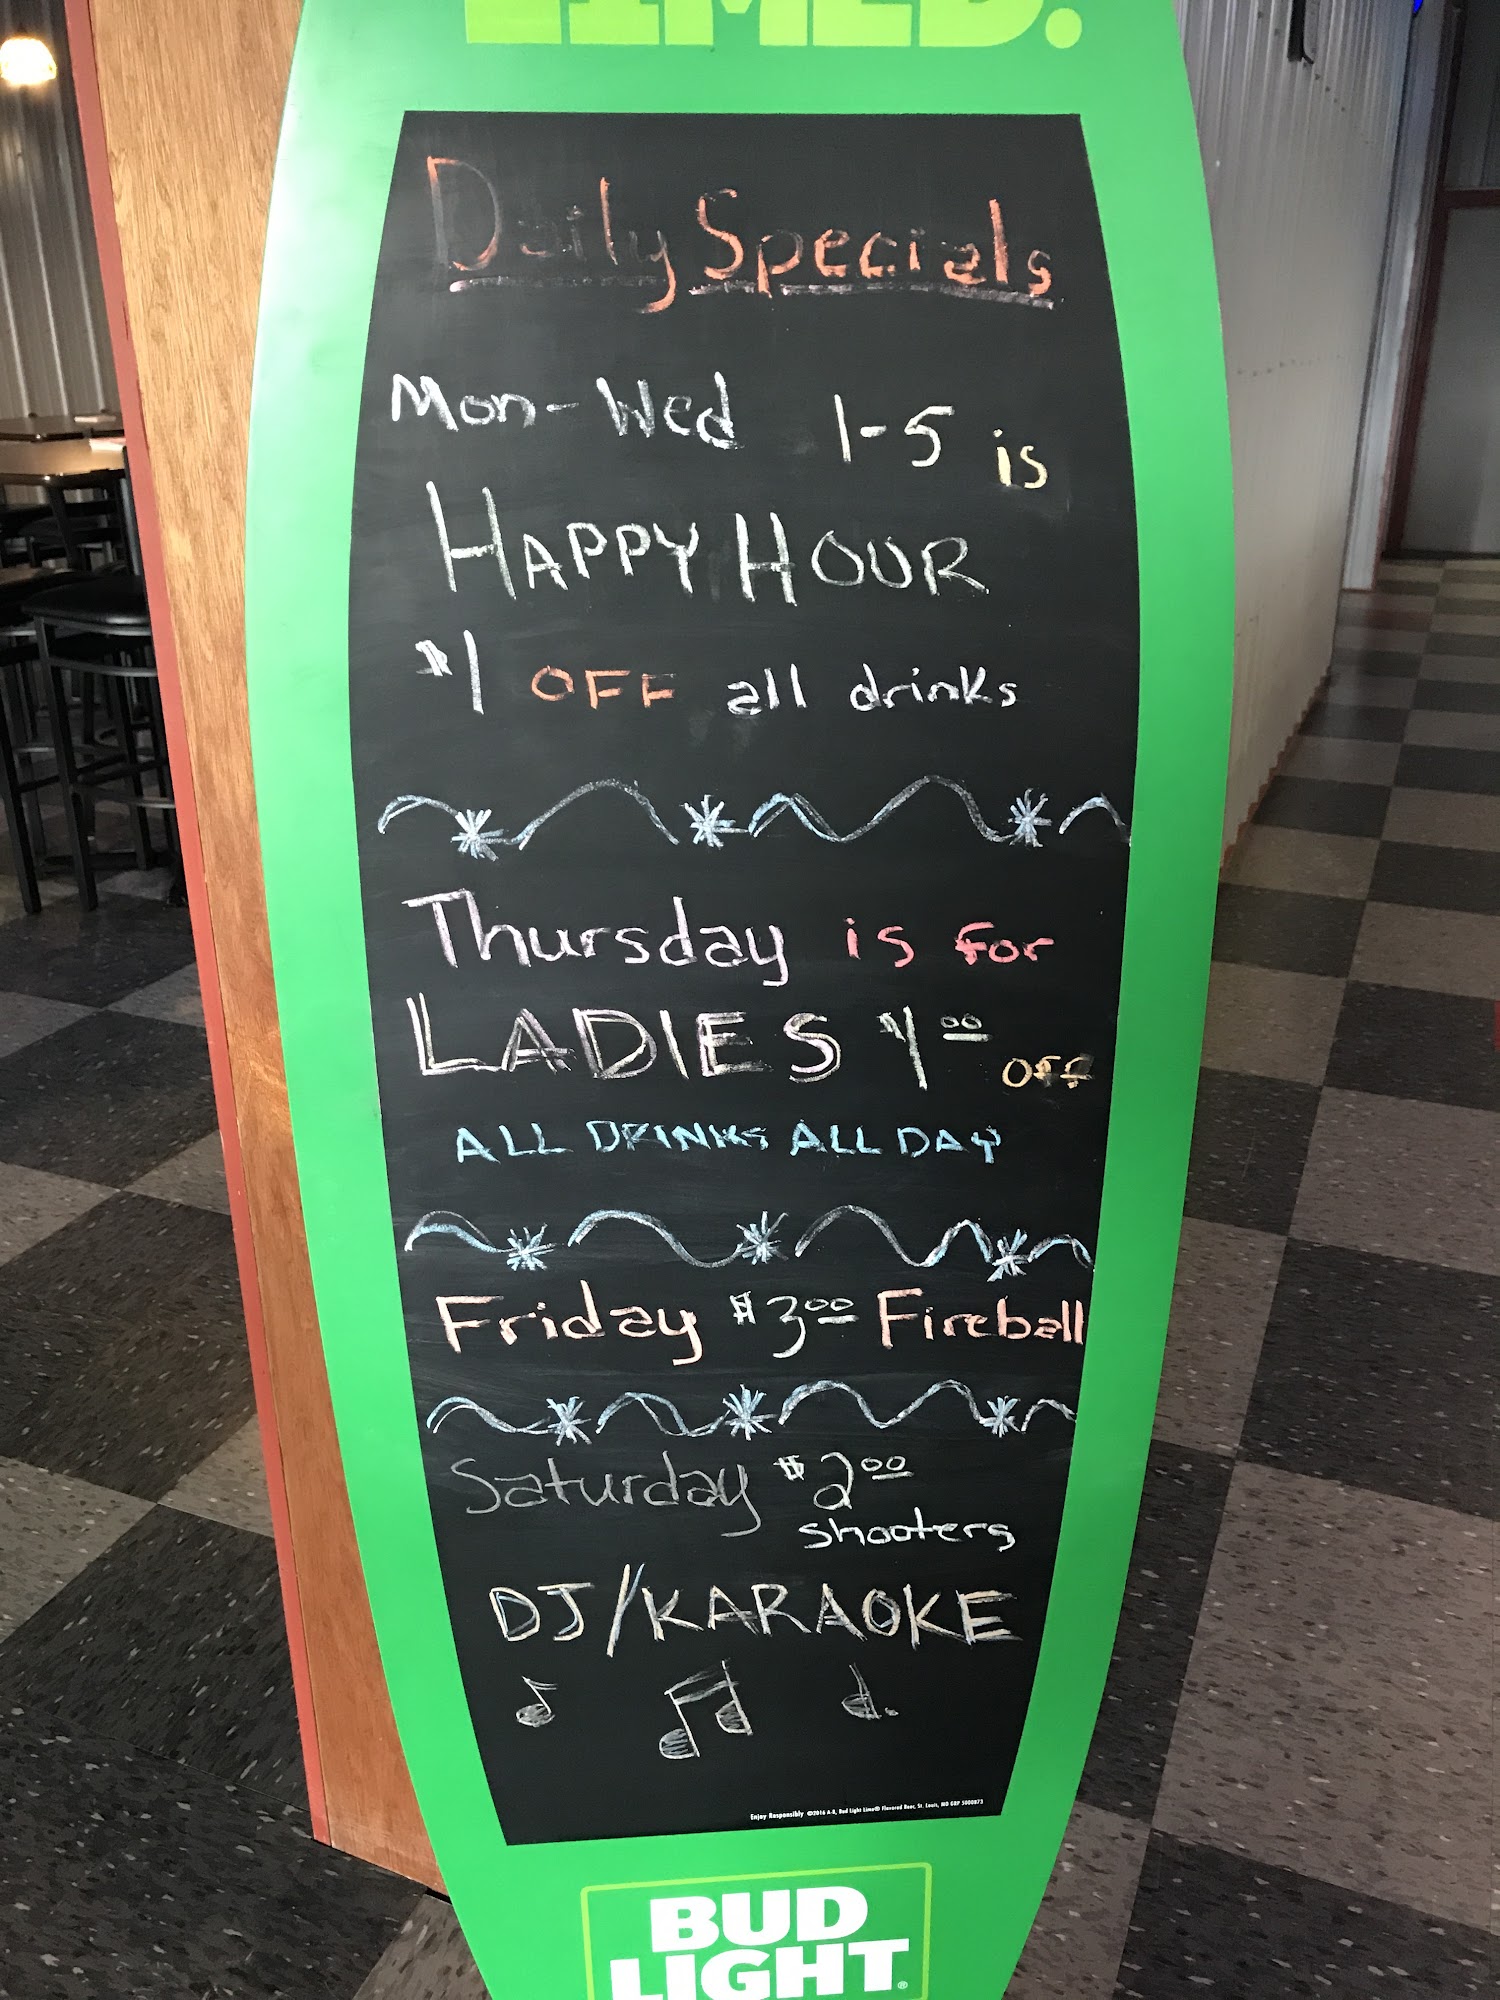 LIMED.
Daily Specials
Mon-Wed 1-5 is
HAPPY HOUR
$1 OFF all drinks
Thursday is for
LADIES $1.00 OFF
ALL DRINKS ALL DAY
Friday $3.00 Fireball
Saturday $2.00
shooters
DJ/KARAOKE
Enjoy Responsibly ©2016 A-B, Bud Light Lime® Flavored Beer, St. Louis, MO GRP 5000873
BUD
LIGHT®